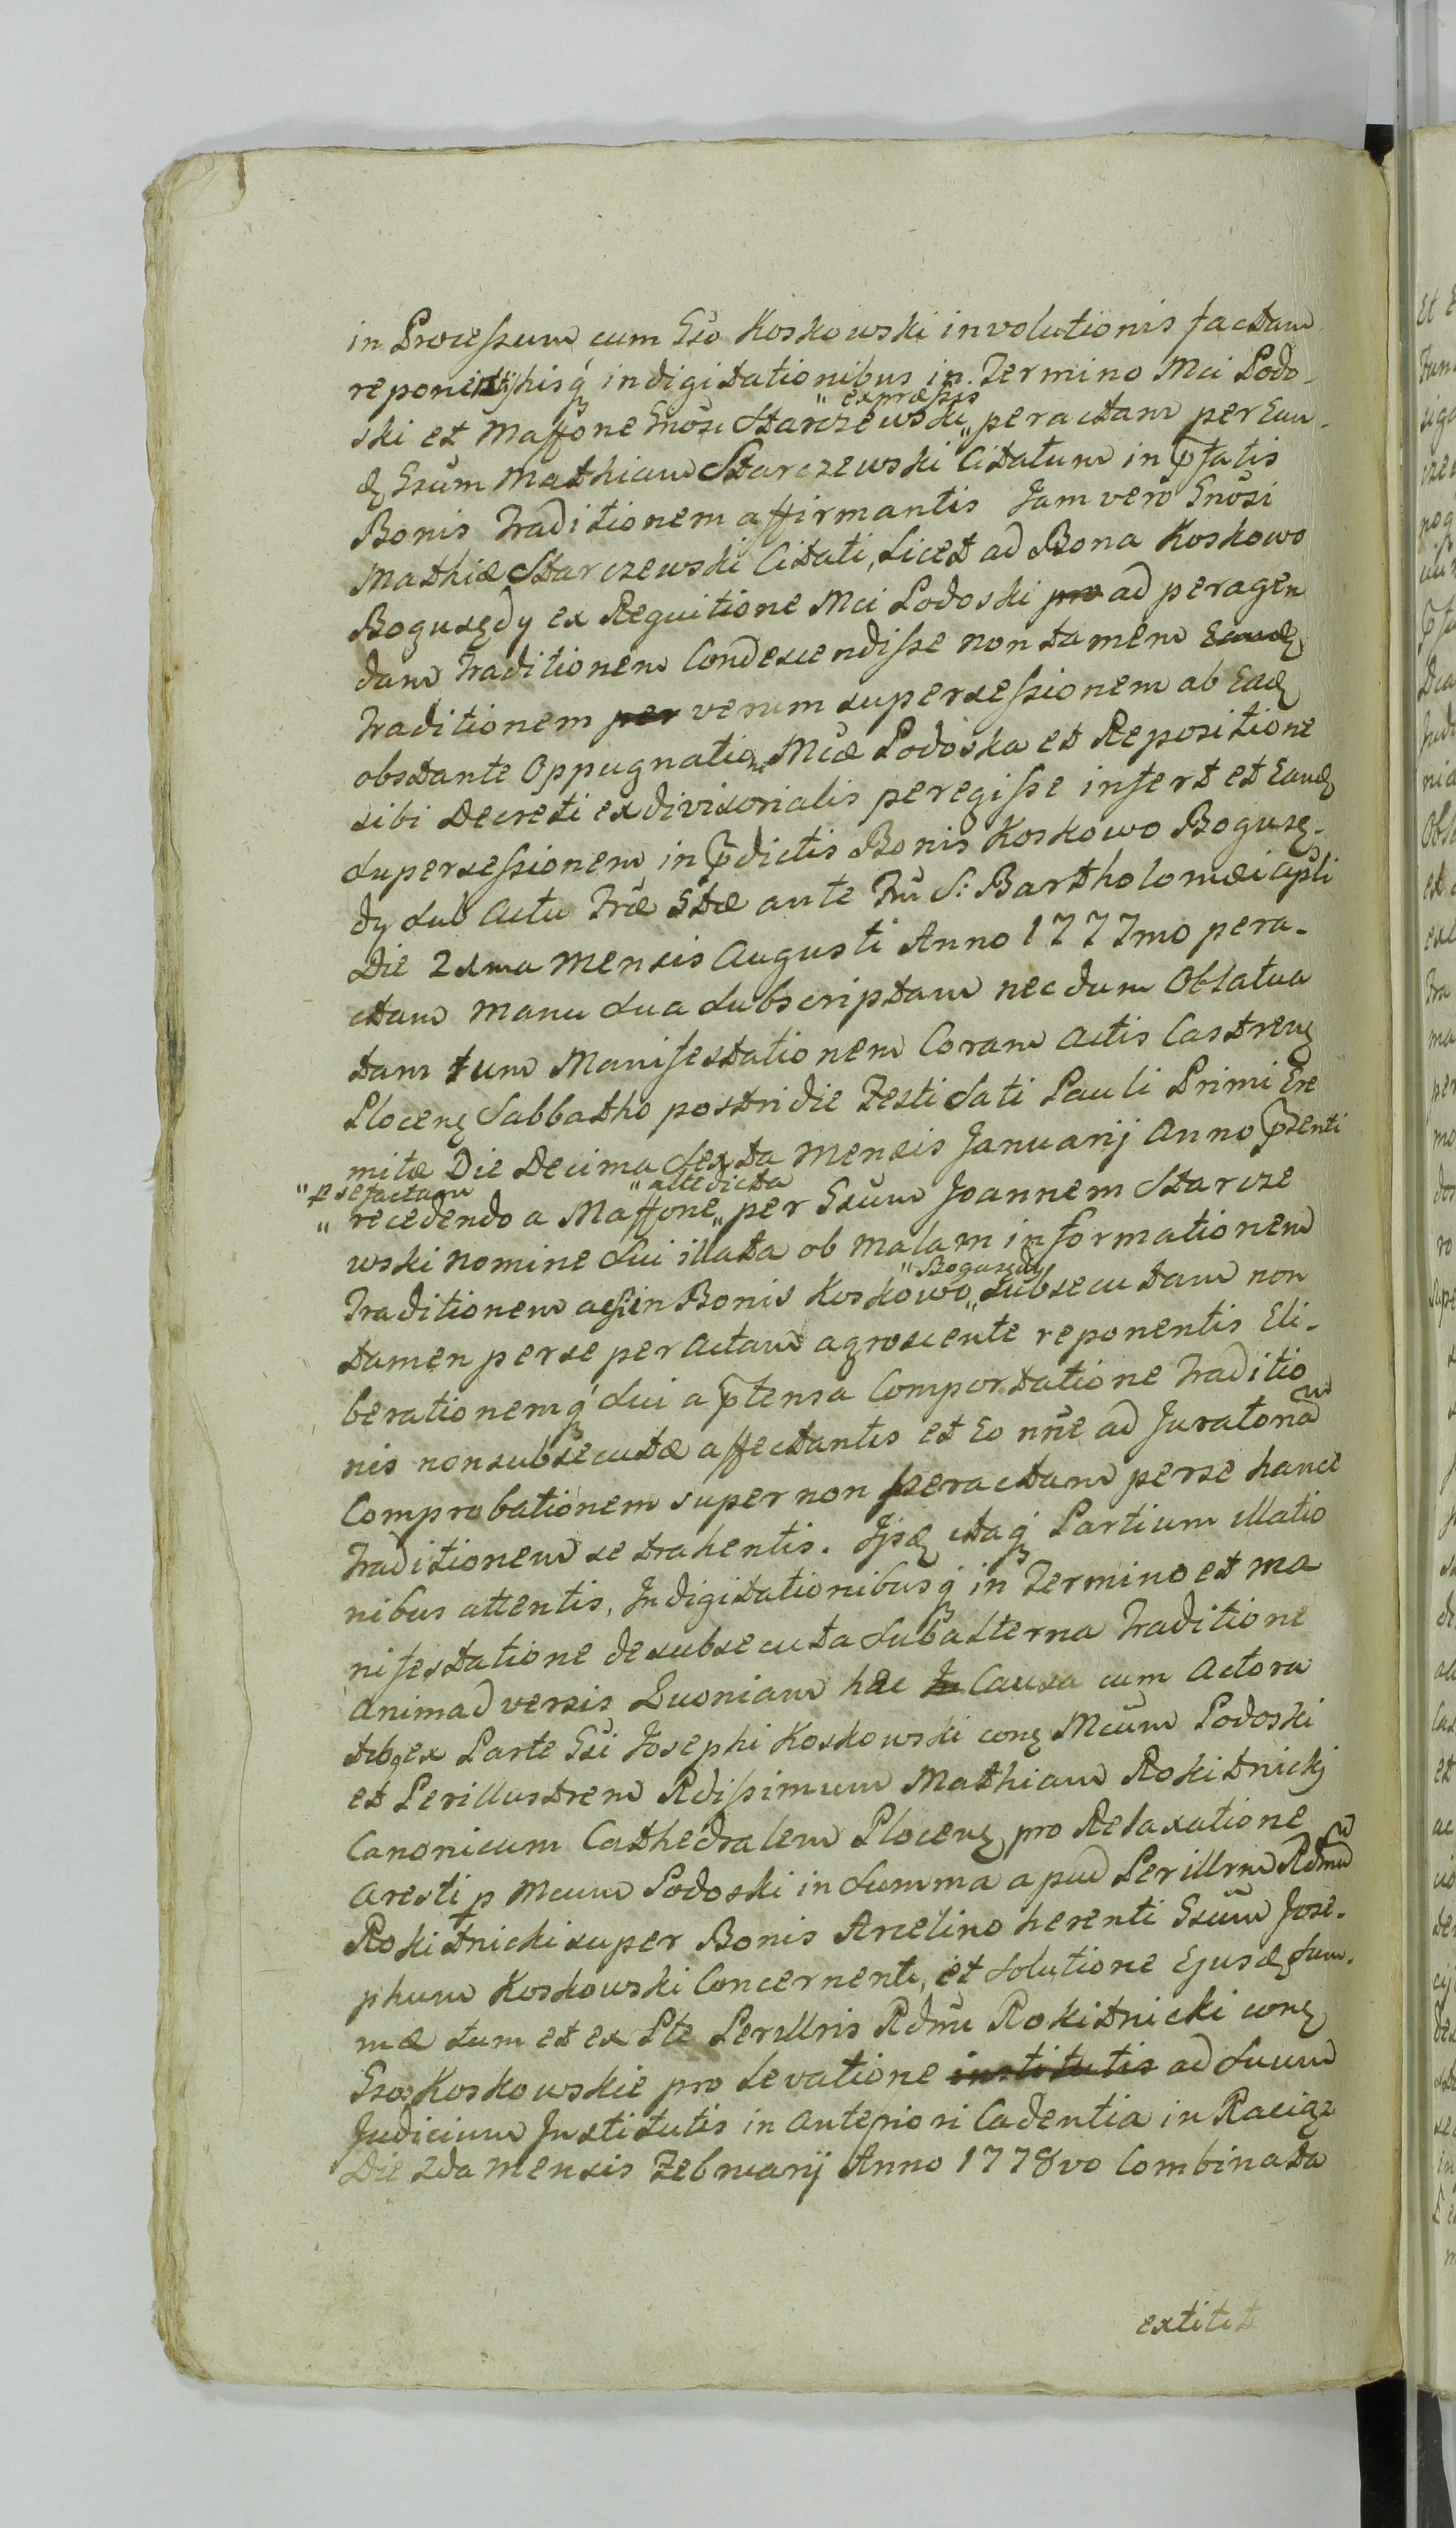 in Processum cum Gso Koskowski involutionis factam
reponentis hisq indigitationibus in Termino Mci Podo-
ski et Maffõne Gnosi Starczewski " expressis " peractam per Eun-
d Gsum Mathiam Starczewski Citatum in pfatis
Bonis Traditionem affirmantis Jam vero Gnosi
Mathiæ Starczewski Citati, Licet ad Bona Koskowo
Bogusędy ex Requitione Mci Podoski pro ad peragen
dam Traditionem Condescendisse non tamen Eand
Traditionem per verum supersessionem ab Ead
obstante Oppugnatione Mcæ Podoska et Repositione
sibi Decreti exdivisorialis peregisse infert et Eand
supersessionem in pdictis Bonis Koskowo Bogusę-
dy sub Actu Fræ 5tæ ante Ftu S: Bartholomæi Apli
Die 21ma Mensis Augusti Anno 1777mo pera-
ctam manu sua subscriptam necdum Oblatua
tam tum Manifestationem Coram Actis Castren
Plocen Sabbatho postridie Festi Sati Pauli Primi Ere
mitæ Die Decima Sexta Mensis Januarij Anno psenti
" p se factam
" recedendo a Maffone " attedicta " per Gsum Joannem Starcze
wski nomine sui illata ob malam informationem
Traditionem acsi in Bonis Koskowo " Bogusędy " subsecutam non
tamen per se peractam agnoscente reponentis Eli-
berationemq sui a ptensa Comportatione Traditio
nis non subsecutæ affectantis et Eo nne ad Juratoriam
Comprobationem super non peractam per se hance
Traditionem se trahentis. Ijsd itaq Partium illatio
nibus attentis, Indigitationibusq in Termino et ma
nifestatione de subsecuta subalterna Traditione
Animadversis Quoniam hæc In Causa cum Actora
tibq ex Parte Gsi Josephi Koskowski con Mcum Podoski
et Perillustrem Rdissimum Mathiam Rokitnicki
Canonicum Cathedralem Plocen pro Relaxatione
Aresti p Mcum Podoski in Summa apud Perillrm Rdmum
Rokitnicki super Bonis Arcelino herenti Gsum Jose-
phum Koskowski Concernenti, et Solutione Ejusd Sum-
mæ tum et ex Pte Perillris Rdmi Rokitnicki con
Gsos Koskowskie pro Levatione institutis ad Suum
Judicium Institutis in Anteriori Cadentia in Raciąz
Die 2da Mensis Februarij Anno 1778vo Combinata
extitit